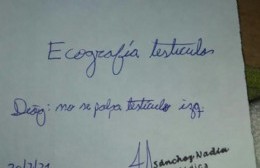 Ecografía testiculos
Diag: no se palpa testículo izq.
Sanchez Nadia